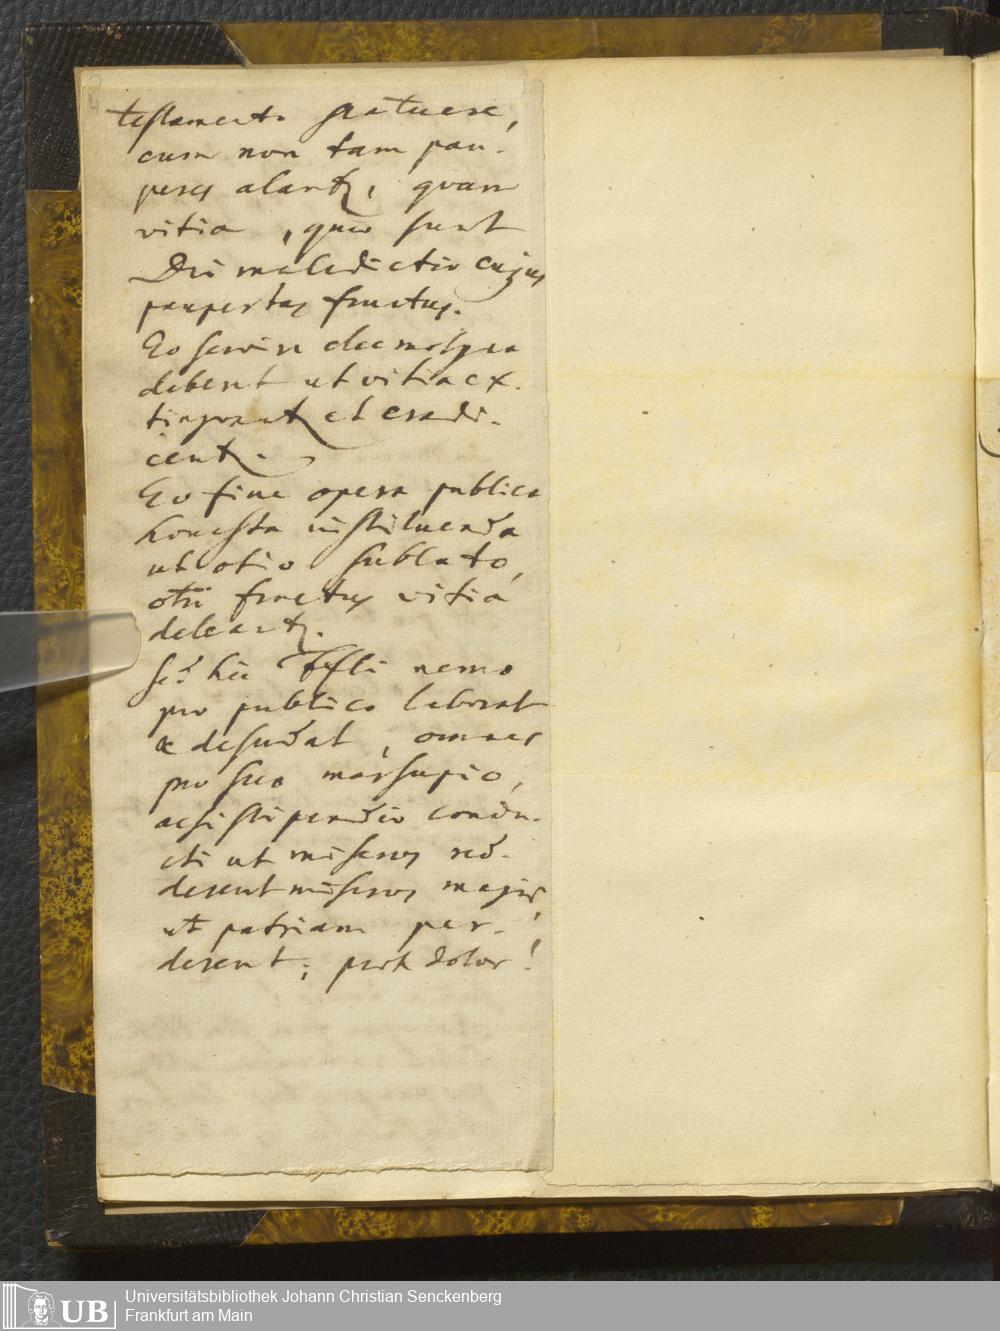 testamento statuere,
cum non tam pau-
peres alantr, quam
vitia, quae sunt
Dei maledictio cujus
paupertas fructus.
Eo servire eleemosyna
debent ut vitia ex-
tinguantr et eradi-
centr.
Eo fine opera publica
honesta instituenda
ut otio sublato,
otii fructus vitia
deleantr.
Sed hic nemo
pro publico laborat
& desudat, omnes
pro suo marsupio,
acsi stipendio condu-
cti ut miseros red-
derent miseros magis,
ut patriam per-
derent; proh dolor!
UB
Universitätsbibliothek Johann Christian Senckenberg
Frankfurt am Main